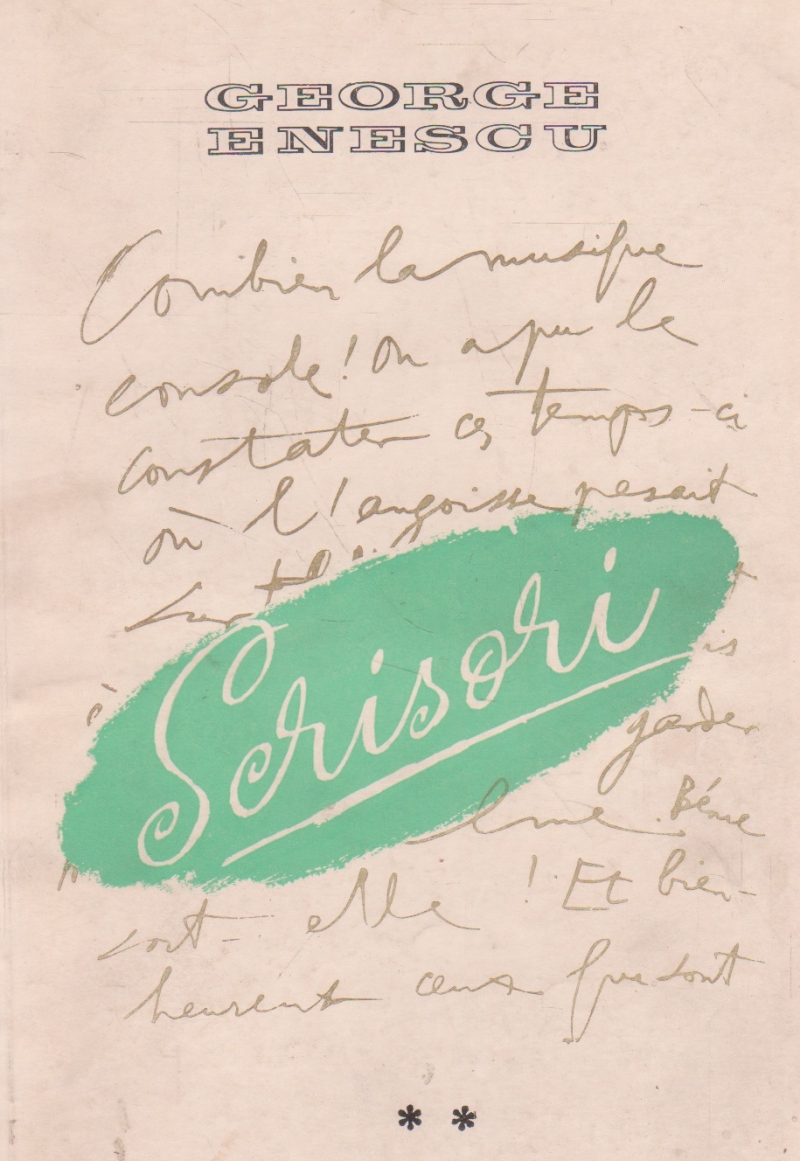 GEORGE
ENESCU
Combien la musique
console! On a pu le
constater ces temps-ci
où l'angoisse pesait
Scrisori
garder
Bénie
soit-elle! Et bien-
heureux ceux que sont
* *